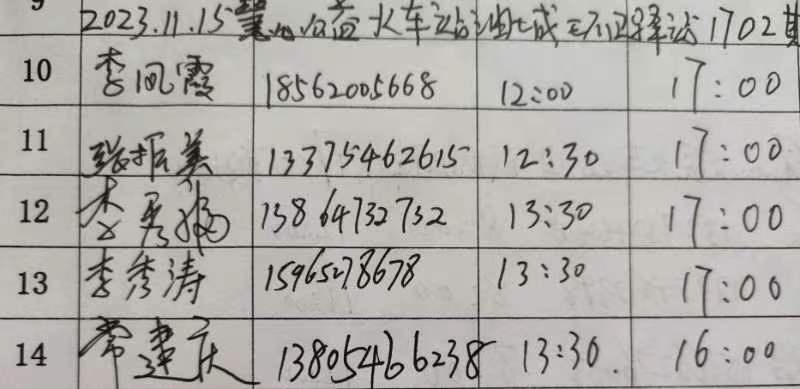 2023.11.15 慧心公益火车站 1702
10 李凤霞 18562005668 12:00 17:00
11 张振美 13375462615 12:30 17:00
12 李秀 13864732732 13:30 17:00
13 李秀涛 15965278678 13:30 17:00
14 常建庆 13805466238 13:30. 16:00